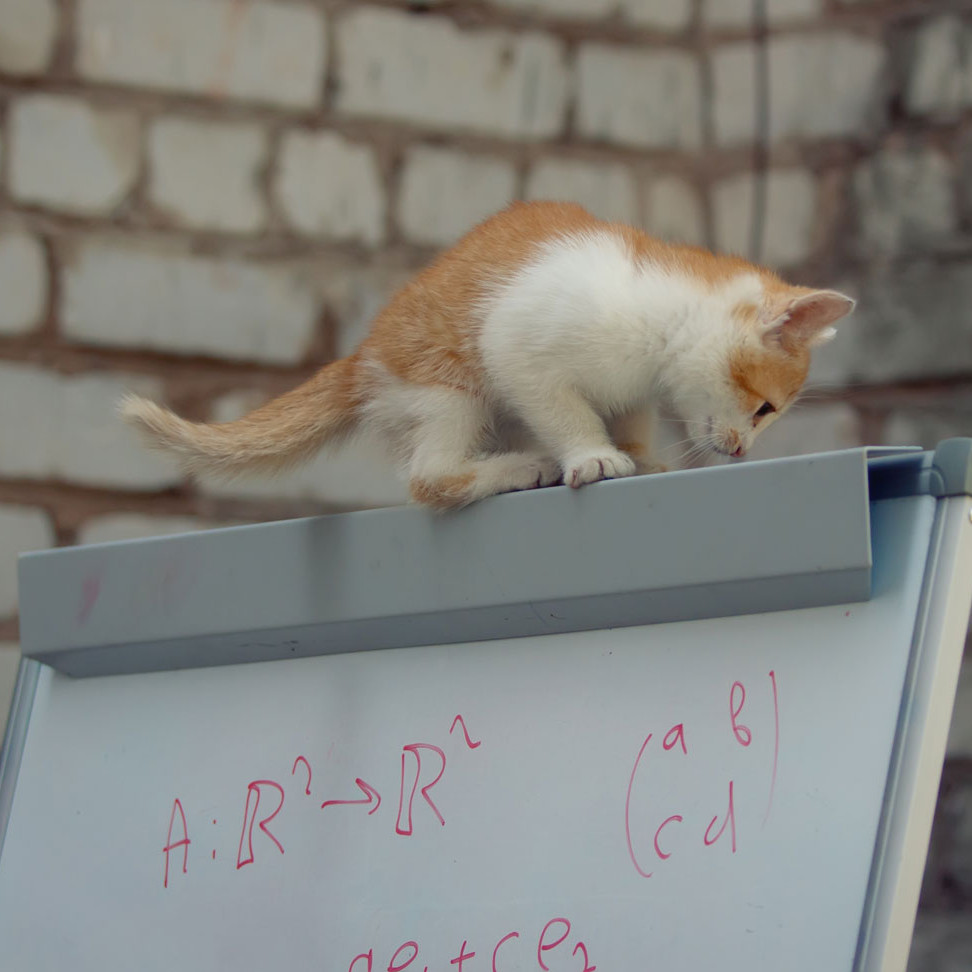 A: ℝ² → ℝ² (a b
c d)
ae₁ + ce₂